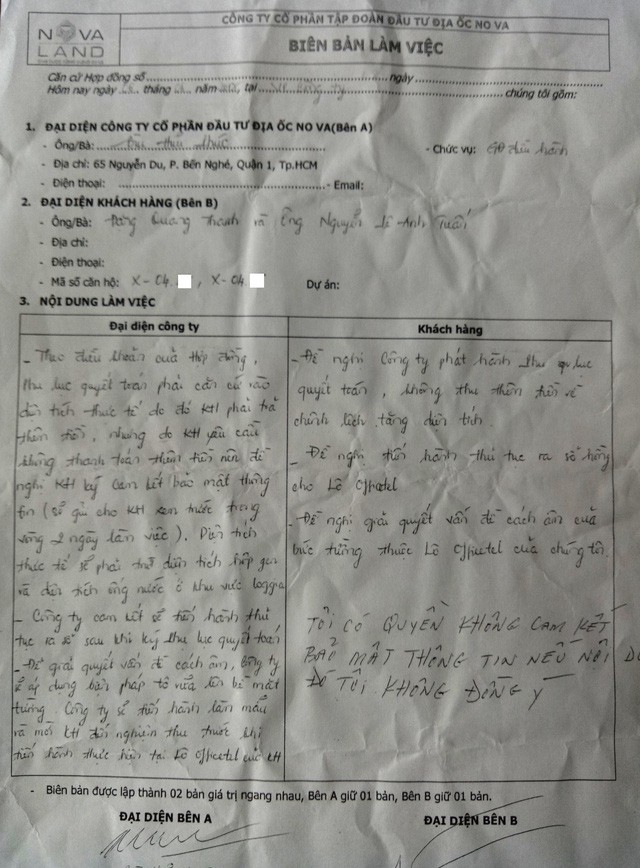 NOVA LAND
CÔNG TY CỔ PHẦN TẬP ĐOÀN ĐẦU TƯ ĐỊA ỐC NO VA
BIÊN BẢN LÀM VIỆC
Căn cứ Hợp đồng số ngày
Hôm nay ngày tháng năm tại chúng tôi gồm:
1. ĐẠI DIỆN CÔNG TY CỔ PHẦN ĐẦU TƯ ĐỊA ỐC NO VA(Bên A)
- Ông/Bà: - Chức vụ: GĐ điều hành
- Địa chỉ: 65 Nguyễn Du, P. Bến Nghé, Quận 1, Tp.HCM
- Điện thoại: - Email:
2. ĐẠI DIỆN KHÁCH HÀNG (Bên B)
- Ông/Bà: Quang Thanh và Ông Nguyễn Lê Anh Tuấn
- Địa chỉ:
- Điện thoại:
- Mã số căn hộ: X-04. , X-04. Dự án:
3. NỘI DUNG LÀM VIỆC
Đại diện công ty
- Theo điều khoản của Hợp đồng,
Phụ lục quyết toán phải căn cứ vào
diện tích thực tế do đó KH phải trả
thêm tiền, nhưng do KH yêu cầu
không thanh toán thêm tiền nên đề
nghị KH ký cam kết bảo mật thông
tin (sẽ gửi cho KH xem trước trong
vòng 2 ngày làm việc). Diện tích
thực tế sẽ phải trừ diện tích hộp gen
và diện tích ống nước ở khu vực loggia
- Công ty cam kết sẽ tiến hành thủ
tục ra sổ sau khi ký phụ lục quyết toán
- Để giải quyết vấn đề cách âm, Công ty
sẽ áp dụng biện pháp tô vữa lên bề mặt
tường. Công ty sẽ tiến hành làm mẫu
và mời KH đến nghiệm thu trước khi
tiến hành thực hiện tại Lô Officetel của KH
Khách hàng
- Đề nghị Công ty phát hành phụ lục
quyết toán, không thu thêm tiền về
chênh lệch tăng diện tích.
- Đề nghị tiến hành thủ tục ra sổ hồng
cho Lô Officetel
- Đề nghị giải quyết vấn đề cách âm của
bức tường thuộc Lô Officetel của chúng tôi.
TÔI CÓ QUYỀN KHÔNG CAM KẾT
BẢO MẬT THÔNG TIN NẾU NỘI DU
ĐÓ TÔI KHÔNG ĐỒNG Ý
- Biên bản được lập thành 02 bản giá trị ngang nhau, Bên A giữ 01 bản, Bên B giữ 01 bản.
ĐẠI DIỆN BÊN A ĐẠI DIỆN BÊN B